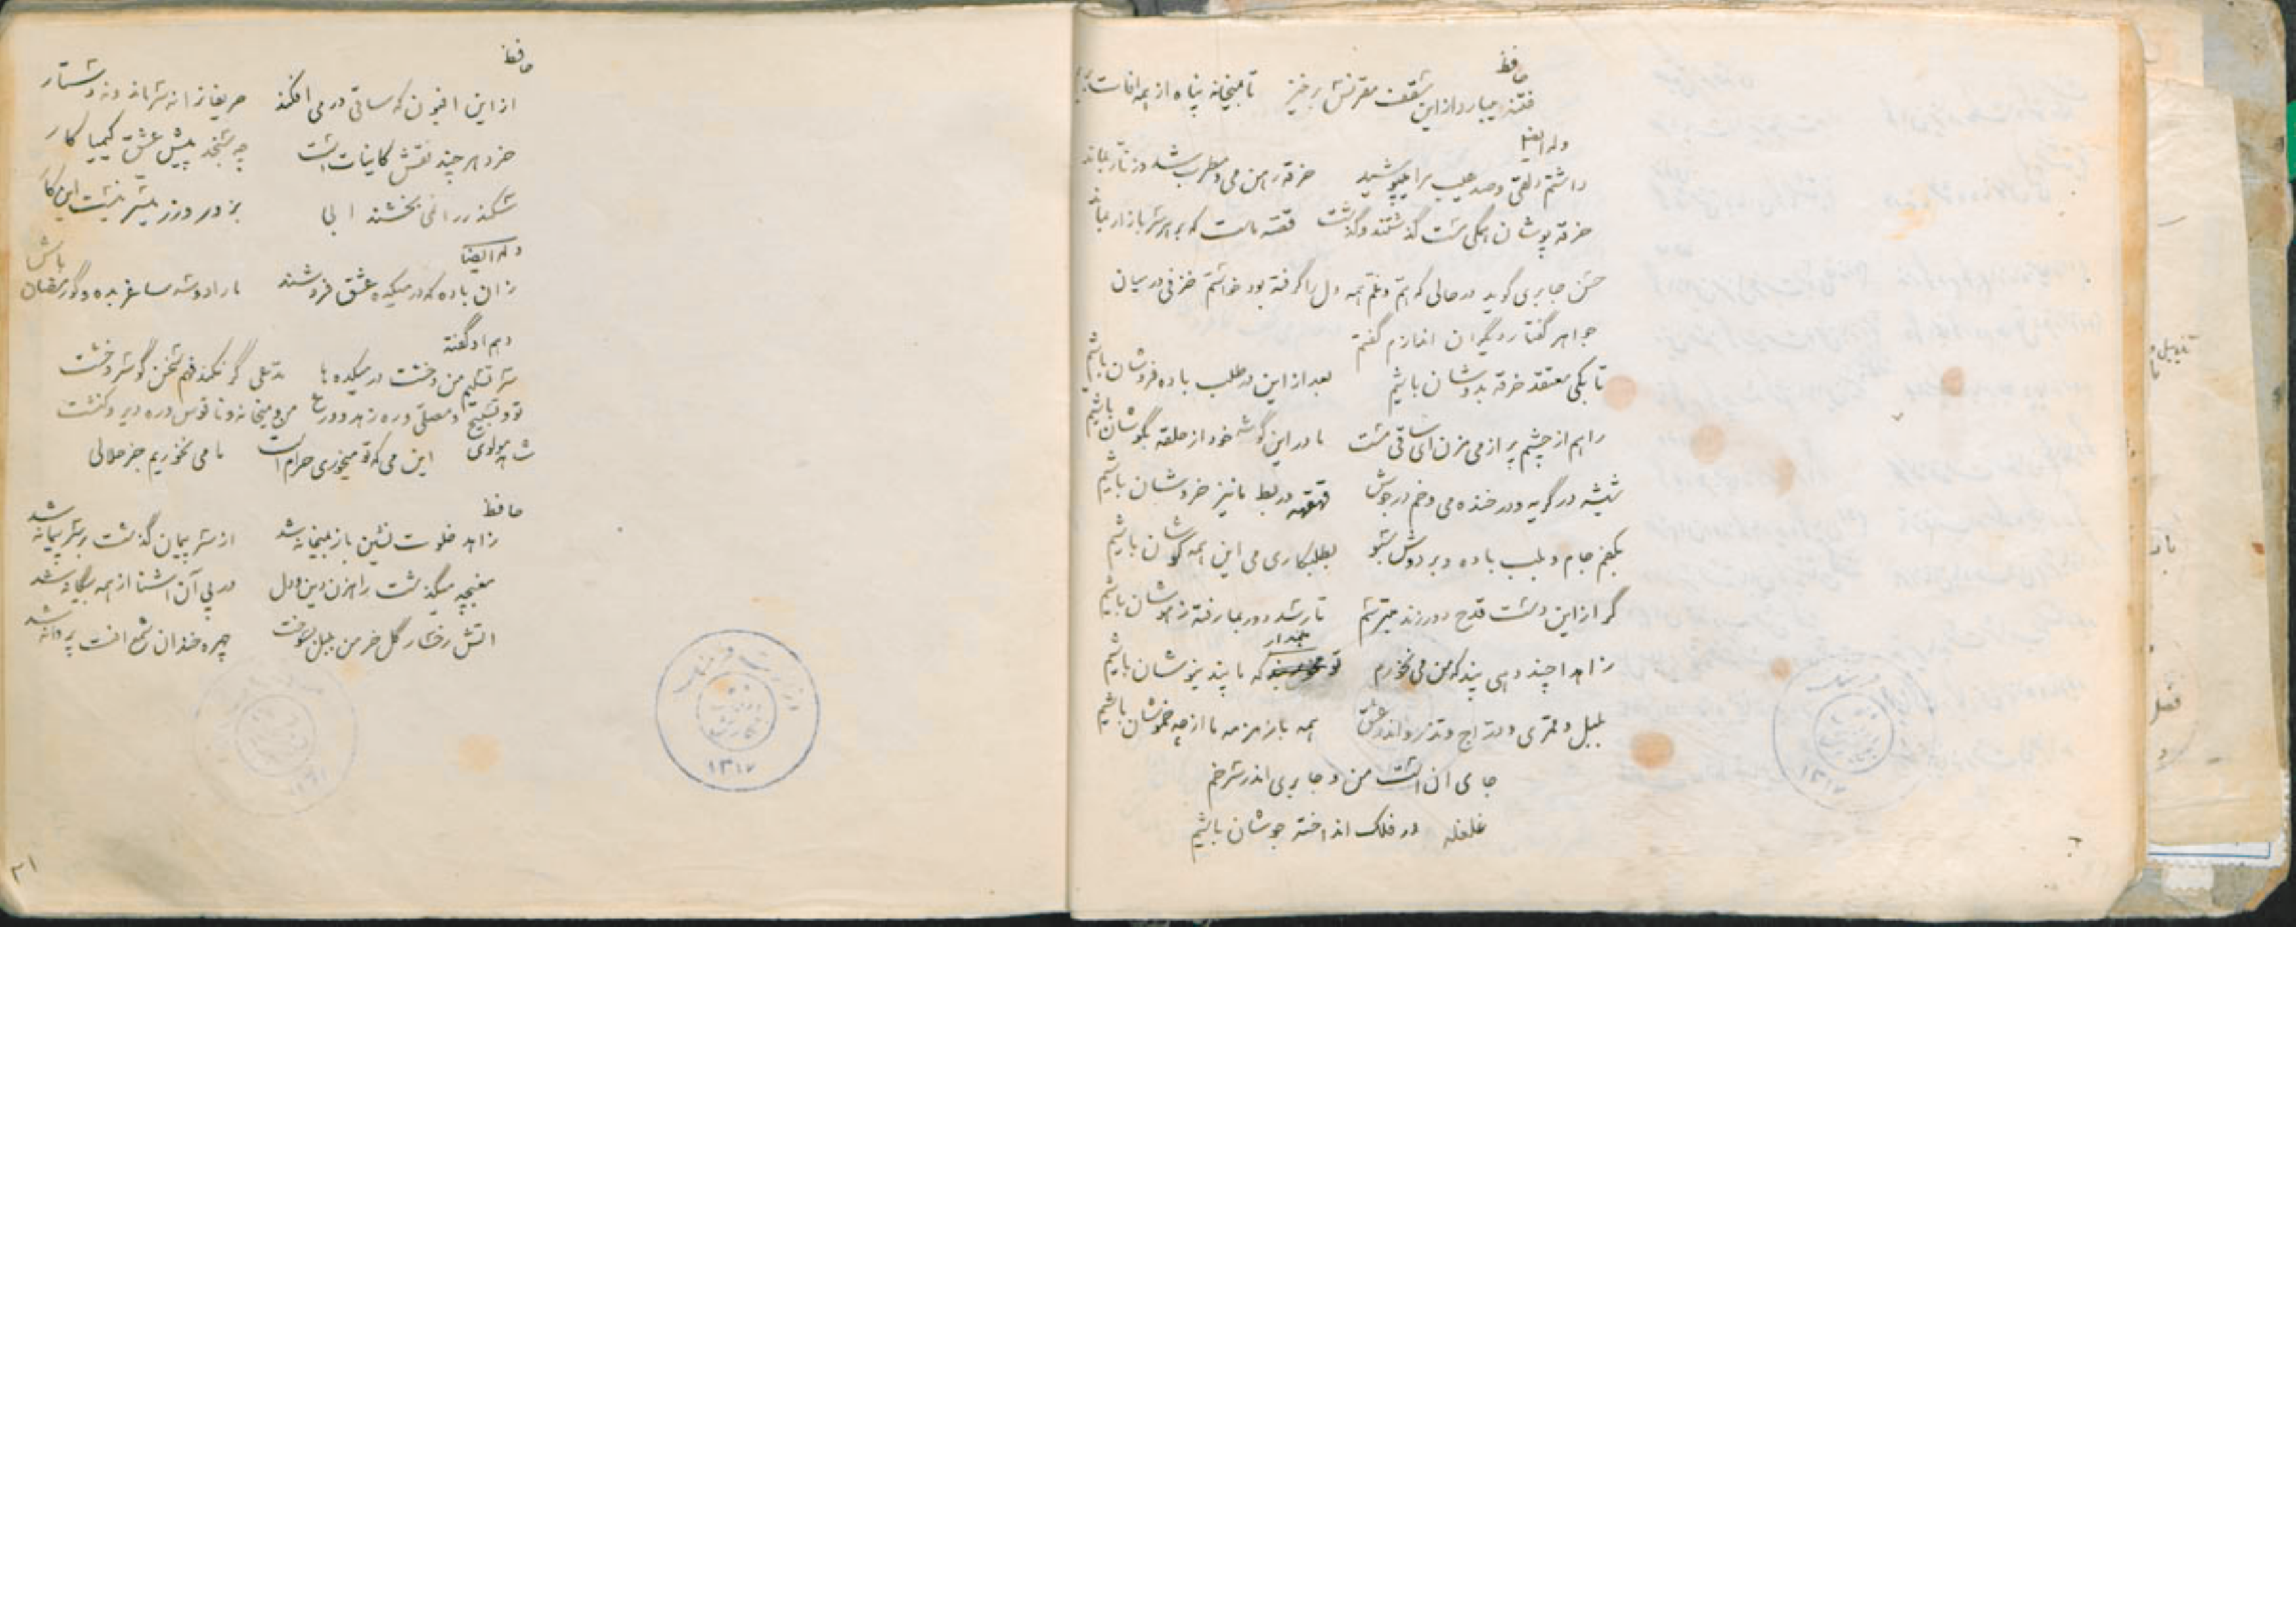 حافظ
فتنه میبارد از این سقف مقرنس برخیز تا بمیخانه پناه از همه افات بریم
وله ایضا
داشتم دلقی و صد عیب مرا میپوشید خرقه رهن می و مطرب شد و زنار بماند
خرقه پوشان همگی مست گذشتند و گذشت قصه ماست که بر هر سر بازار بماند
حسن جابری گوید در حالی که هم و غم همه دل را گرفته بود خواستم خزفی در میان
جواهر گفتار دیگران اندازم گفتم
تا بکی معتقد خرقه بدوشان باشیم بعد از این در طلب باده فروشان باشیم
راهم از چشم پر از می مزن ای ساقی مست تا در این گوشه خود از حلقه بگوشان باشیم
شیشه در گریه و در خنده می و خم در جوش قهقهه در بط ما نیز خروشان باشیم
بکفم جام و بلب باده و بر دوش سبو بطلبکاری می این همه کوشان باشیم
گر از این دست قدح دور زند میترسم تا رسد دور بما رفته ز هوشان باشیم
زاهدا چند دهی پند که من می نخورم تو مپندار که ما پند نیوشان باشیم
بلبل و قمری و دراج و تذرو اندر عشق همه با زمزمه ما از چه خموشان باشیم
جای ان است من و جابری اندر سر خم
غلغله در فلک انداخته جوشان باشیم
حافظ
از این افیون که ساقی در می افکند حریفان را نه سر ماند و نه دستار
خرد هر چند نقش کاینات است چه سنجد پیش عشق کیمیا کار
سکندر را نمی بخشند ابی بزور و زر میسر نیست این کار
وله ایضا
زان باده که در میکده عشق فروشند ما را دو سه ساغر بده و گو رمضان باش
و هم او گفته
سر تسلیم من و خشت در میکده ها مدعی گر نکند فهم سخن گو سر و خشت
تو و تسبیح و مصلی و ره زهد و ورع من و میخانه و ناقوس و ره دیر و کنشت
مولوی این می که تو میخوری حرام است ما می نخوریم جز حلالی
حافظ
زاهد خلوت نشین باز بمیخانه شد از سر پیمان گذشت بر سر پیمانه شد
مغبچه میگذشت راهزن دین و دل در پی آن اشنا از همه بیگانه شد
اتش رخسار گل خرمن بلبل بسوخت چهره خندان شمع افت پروانه شد
۱۳۱۷
۳۱